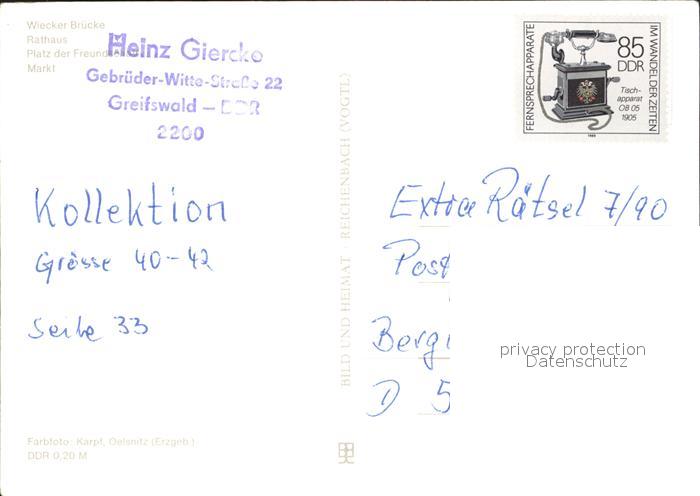 Wiecker Brücke
Rathaus
Platz der Freundschaft
Markt
Heinz Giercke
Gebrüder-Witte-Straße 22
Greifswald — DDR
2200
Kollektion
Grösse 40-42
Seite 33
Farbfoto: Karpf, Oelsnitz (Erzgeb.)
DDR 0,20 M
BILD UND HEIMAT · REICHENBACH (VOGTL)
FERNSPRECHAPPARATE
IM WANDEL DER ZEITEN
85
DDR
Tisch-
apparat
OB 05
1905
1989
Extra Rätsel 7/90
Post
Bergi
D 5
privacy protection
Datenschutz